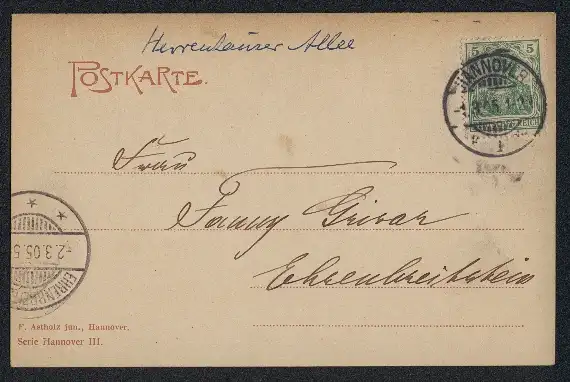 Herrenhäuser Allee
POSTKARTE.
5 5
HANNOVER
REICH
Frau
Fanny Grisar
Ehrenbreitstein
-2.3.05.5
F. Astholz jun., Hannover.
Serie Hannover III.